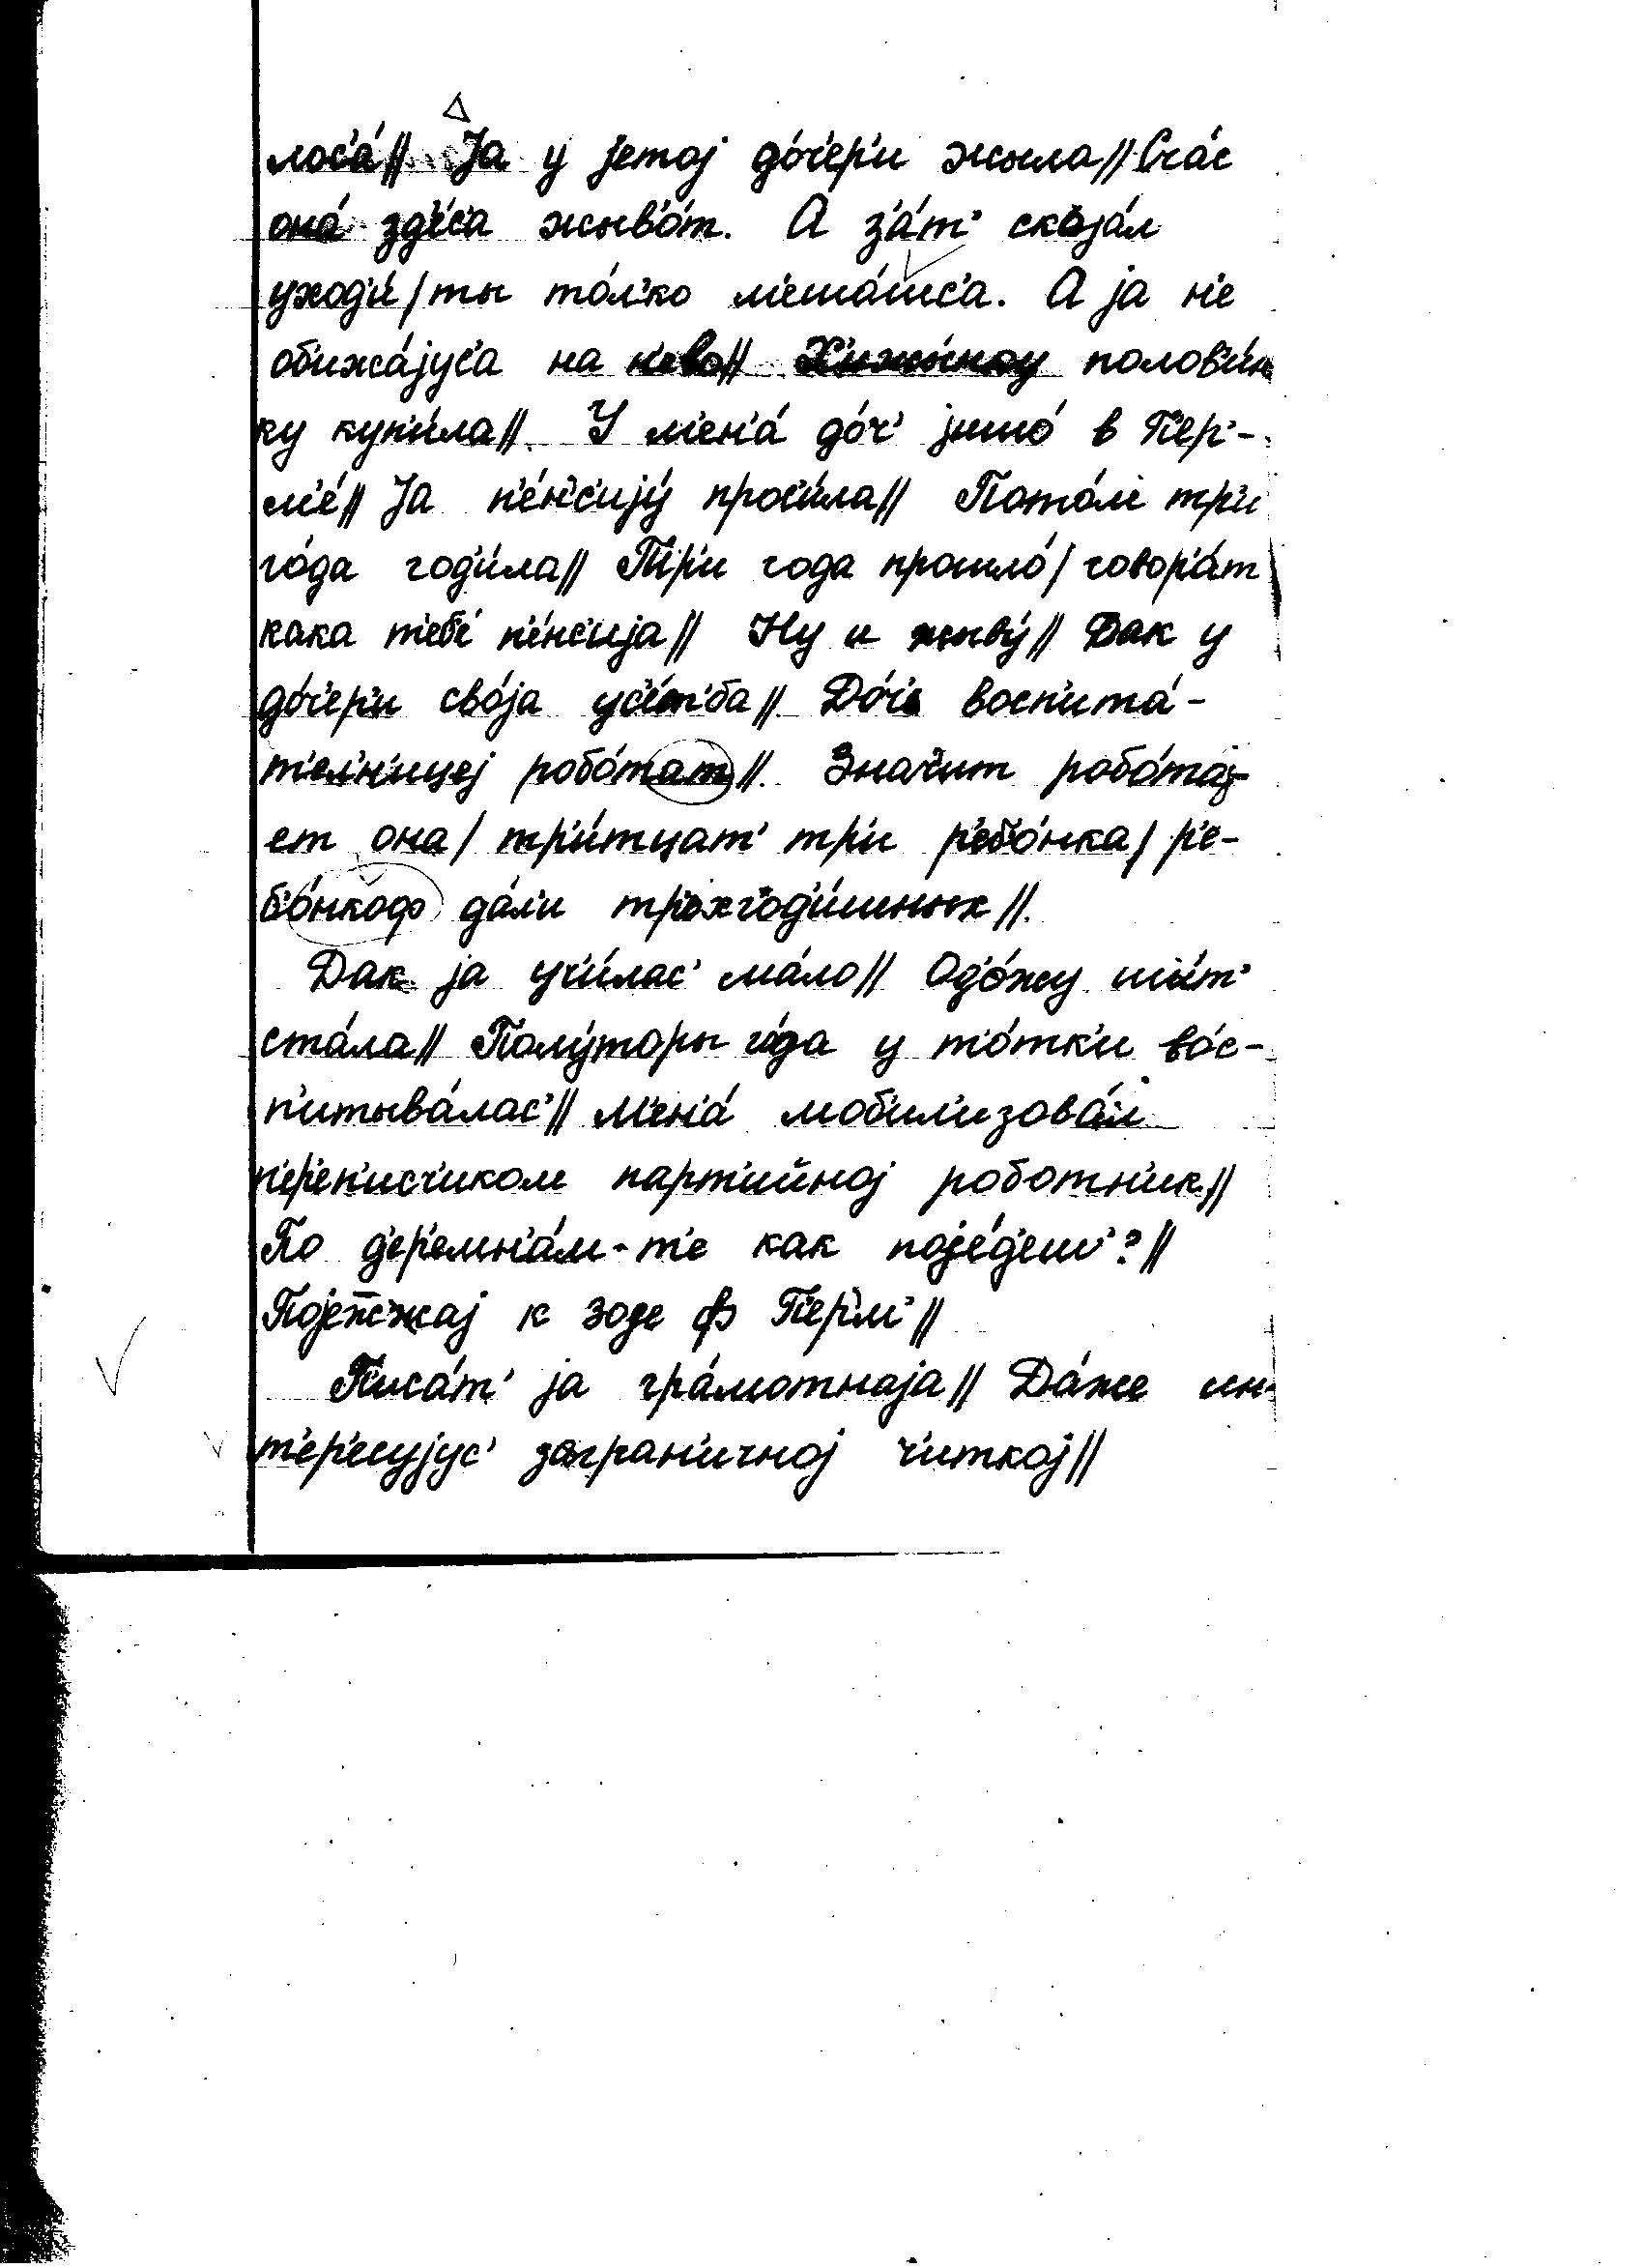 лос'а́// Jа у jетоj до́ч'ер'и жыла// Счас
она́ зд'е́с'а жыв'о́т. А з'а́т' скаjа́л
уход'и́/ ты то́л'ко м'еша́шс'а. А jа н'е
об'ижа́jус'а на н'ево// Х'ижы́нку полов'и́н
ку куп'и́ла// У м'ен'а́ до́ч' jишо́ в П'ер'-
м'е́// Jа п'е́нс'иjу́ прос'и́ла// Пото́м тр'и
го́да год'и́ла// Тр'и года прошло́/ говор'а́т
кака т'еб'е́ п'е́нс'иjа// Ну и жыву́// Дак у
до́ч'ер'и сво́jа ус'а́т'ба// До́ч' восп'ита́-
т'ел'н'ицеj робо́тат// Знач'ит робо́таj-
ет она/ тр'и́тцат' тр'и р'еб'о́нка/ р'е-
б'о́нкоф да́л'и тр'охгод'и́шных//
Дак jа уч'и́лас' ма́ло// Од'о́жу шы́т'
ста́ла// Полу́торы го́да у т'о́тк'и во́с-
п'итыва́лас'// М'ен'а́ моб'ил'изова́л
п'ер'еп'исч'иком парт'ийноj роботн'ик//
По д'ер'емн'а́м-т'е как поjе́д'еш'?//
Поjежжаj к зод'е ф П'ерм'//
П'иса́т' jа гра́мотнаjа// Да́же ин-
т'ер'есуjус' заграничноj ч'иткоj//